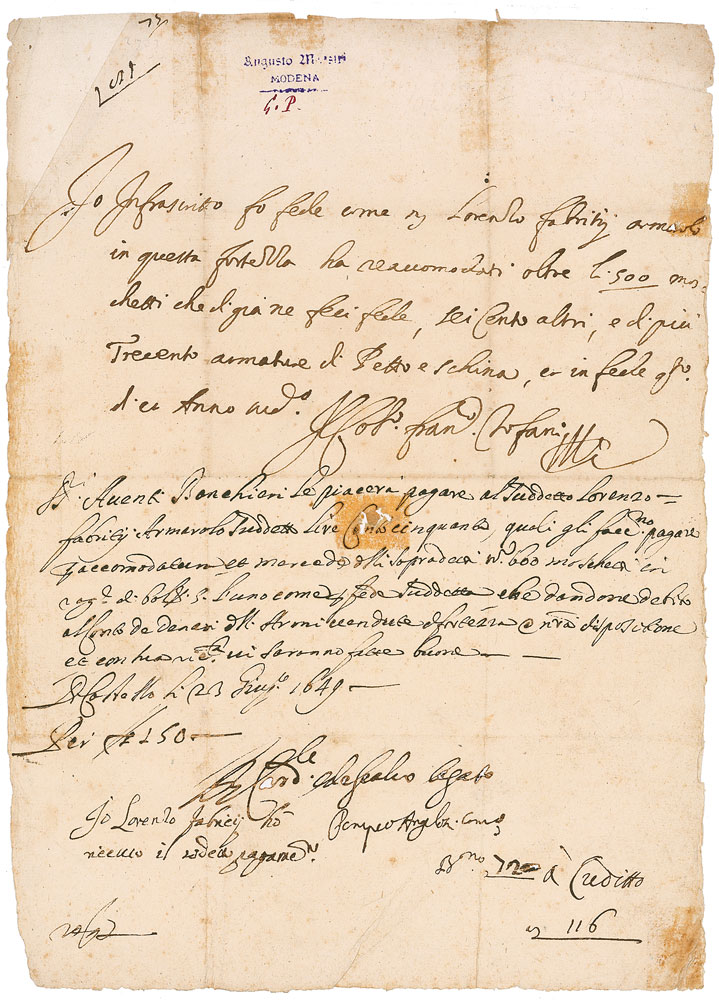 Augusto
MODENA
G. P.
Io Infrascritto fo fede come Lorenzo Fabritij armarolo
in questa fortezza ha reaccomodati oltre li 500 mos-
chetti che di già ne feci fede, sei Cento altri, e di più
Trecento armature di Petto e schina, et in fede q.to
di et Anno sud.o
Fran.o Tofani
Aventi Bonchieri le piacerà pagare al suddetto Lorenzo
fabritij Armarolo suddetto lire Cento cinquanta quali gli pagare
accomodatura et mercede delli sopradetti n.o 600 moschetti in
rag.e di bol. 5 l'uno come fede suddetta che dandone debito
al Conto de denari dell' Armi vendute fortezza e nra dispositione
et con sua ric.ta vi saranno fatte buone
Di Castello li 23 Giug.o 1649
Per £ 150
Card.le legato
Io Lorenzo fabritij hò Pompeo
riceuto il sudetto pagame.n
à Creditto
116